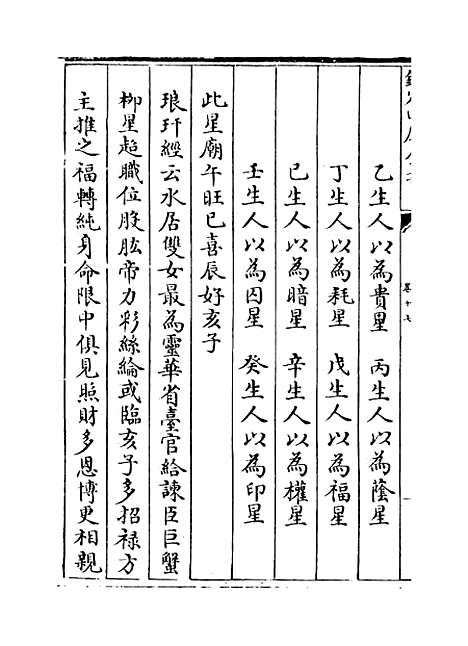 欽定四庫全書
卷十七
乙生人以為貴星　丙生人以為蔭星
丁生人以為耗星　戊生人以為福星
已生人以為暗星　辛生人以為權星
壬生人以為囚星　癸生人以為印星
此星廟午旺巳喜辰好亥子
琅玕經云水居雙女最為靈華省臺官給諫臣巨蟹
柳星超職位股肱帝力彩絲綸或臨亥子多招祿方
主推之福轉純身命限中俱見照財多恩博更相親